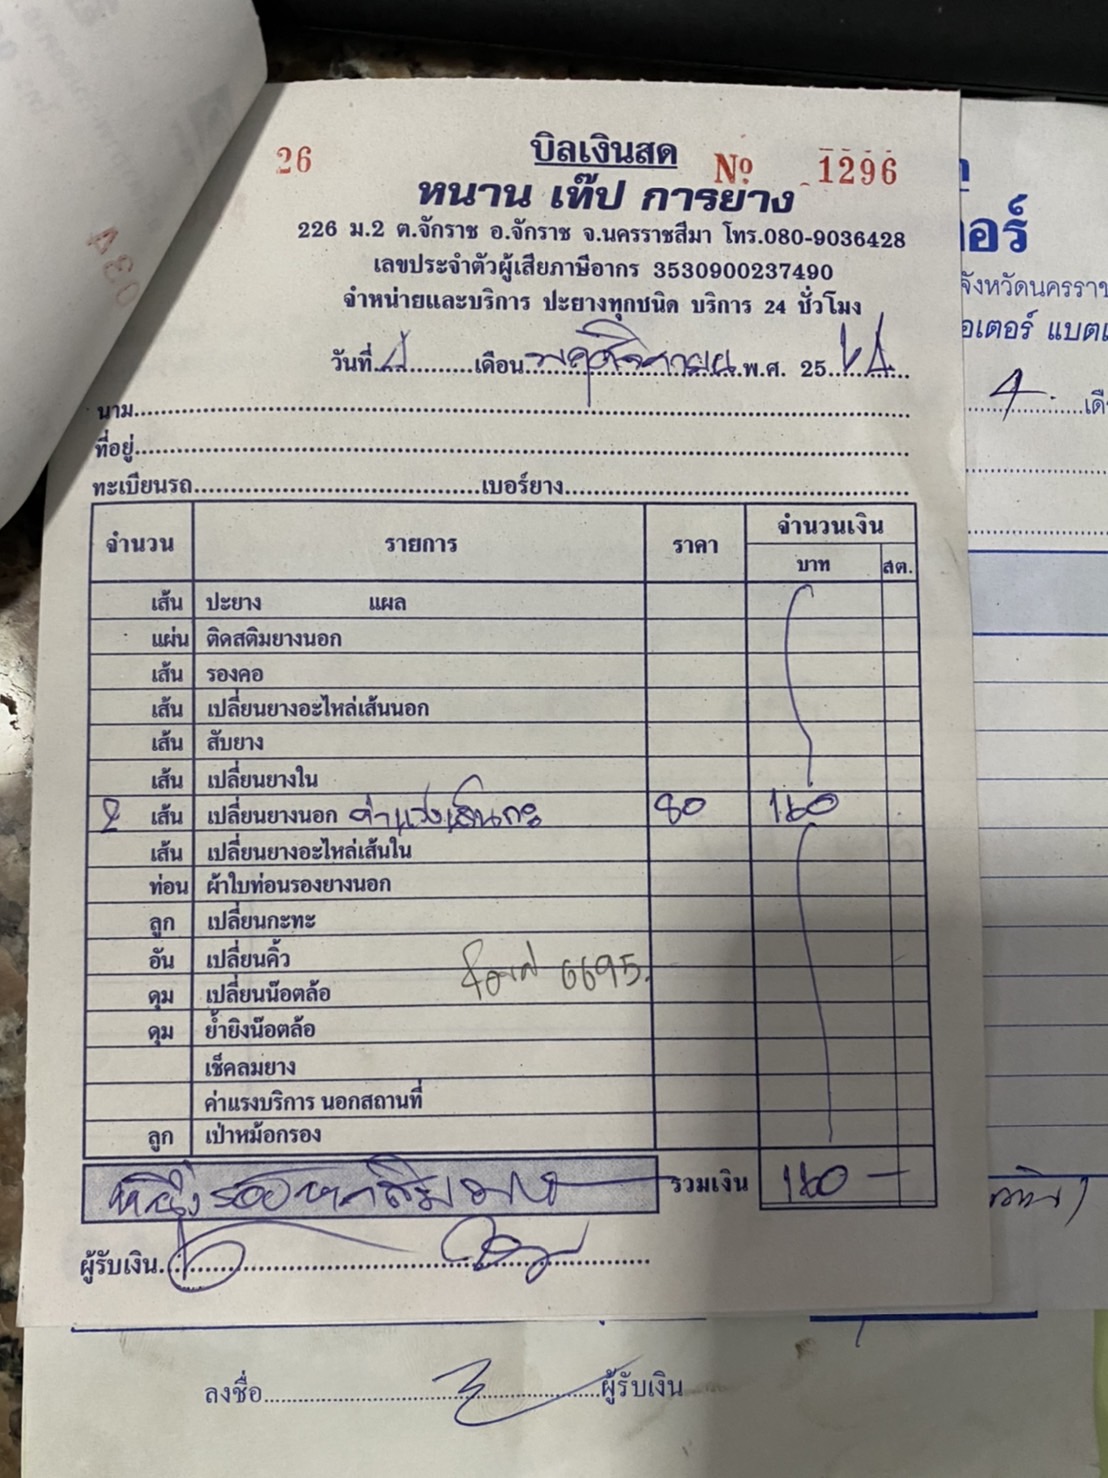 26
บิลเงินสด
Nº 1296
หนาน เท๊ป การยาง
226 ม.2 ต.จักราช อ.จักราช จ.นครราชสีมา โทร.080-9036428
เลขประจำตัวผู้เสียภาษีอากร 3530900237490
จำหน่ายและบริการ ปะยางทุกชนิด บริการ 24 ชั่วโมง
วันที่ เดือน พฤศจิกายน พ.ศ. 25
นาม
ที่อยู่
ทะเบียนรถ เบอร์ยาง
จำนวน รายการ ราคา จำนวนเงิน
บาท สต.
เส้น ปะยาง แผล
แผ่น ติดสติมยางนอก
เส้น รองคอ
เส้น เปลี่ยนยางอะไหล่เส้นนอก
เส้น สับยาง
เส้น เปลี่ยนยางใน
2 เส้น เปลี่ยนยางนอก 80 160
เส้น เปลี่ยนยางอะไหล่เส้นใน
ท่อน ผ้าใบท่อนรองยางนอก
ลูก เปลี่ยนกะทะ
อัน เปลี่ยนคิ้ว
6695.
ดุม เปลี่ยนน๊อตล้อ
ดุม ย้ำยิงน๊อตล้อ
เช็คลมยาง
ค่าแรงบริการ นอกสถานที่
ลูก เป่าหม้อกรอง
หนึ่งร้อยหกสิบบาท รวมเงิน 160 -
ผู้รับเงิน
ลงชื่อ ผู้รับเงิน
034
อร์
จังหวัดนครราช
อเตอร์ แบตเ
4 เดื